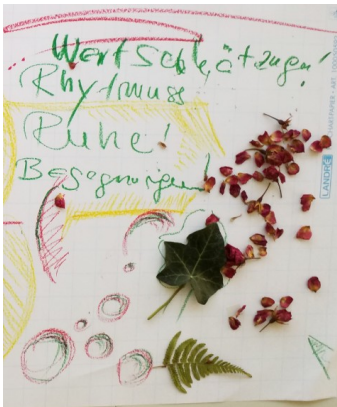 Wertschätzung!
Rhytmuss
Ruhe!
Begegnungen!
LANDRÉ